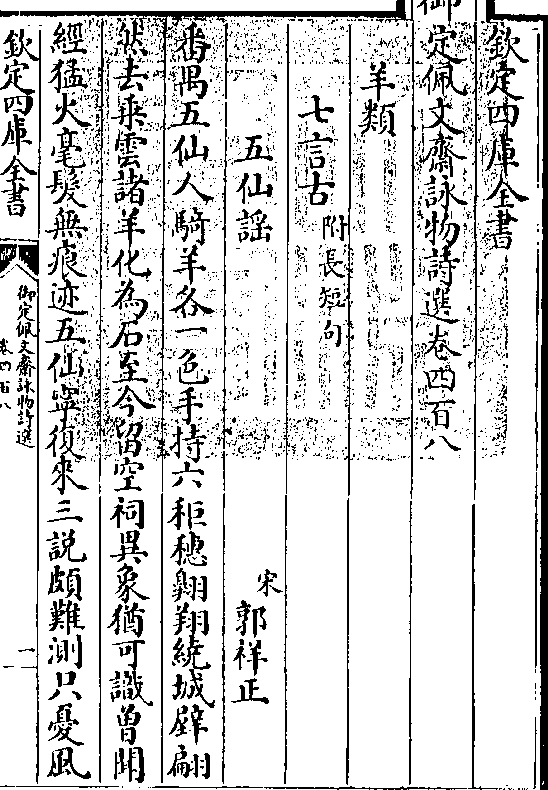 欽定四庫全書
御定佩文齋詠物詩選卷四百八
羊類
七言古 附長短句
五仙謡 宋 郭祥正
番禺五仙人騎羊各一色手持六秬穗翺翔繞城壁翩
然去乗雲諸羊化為石至今留空祠異象猶可識曾聞
經猛火毫髮無痕迹五仙寧復來三説頗難測只憂風
欽定四庫全書
御定佩文齋詠物詩選
卷四百八
一